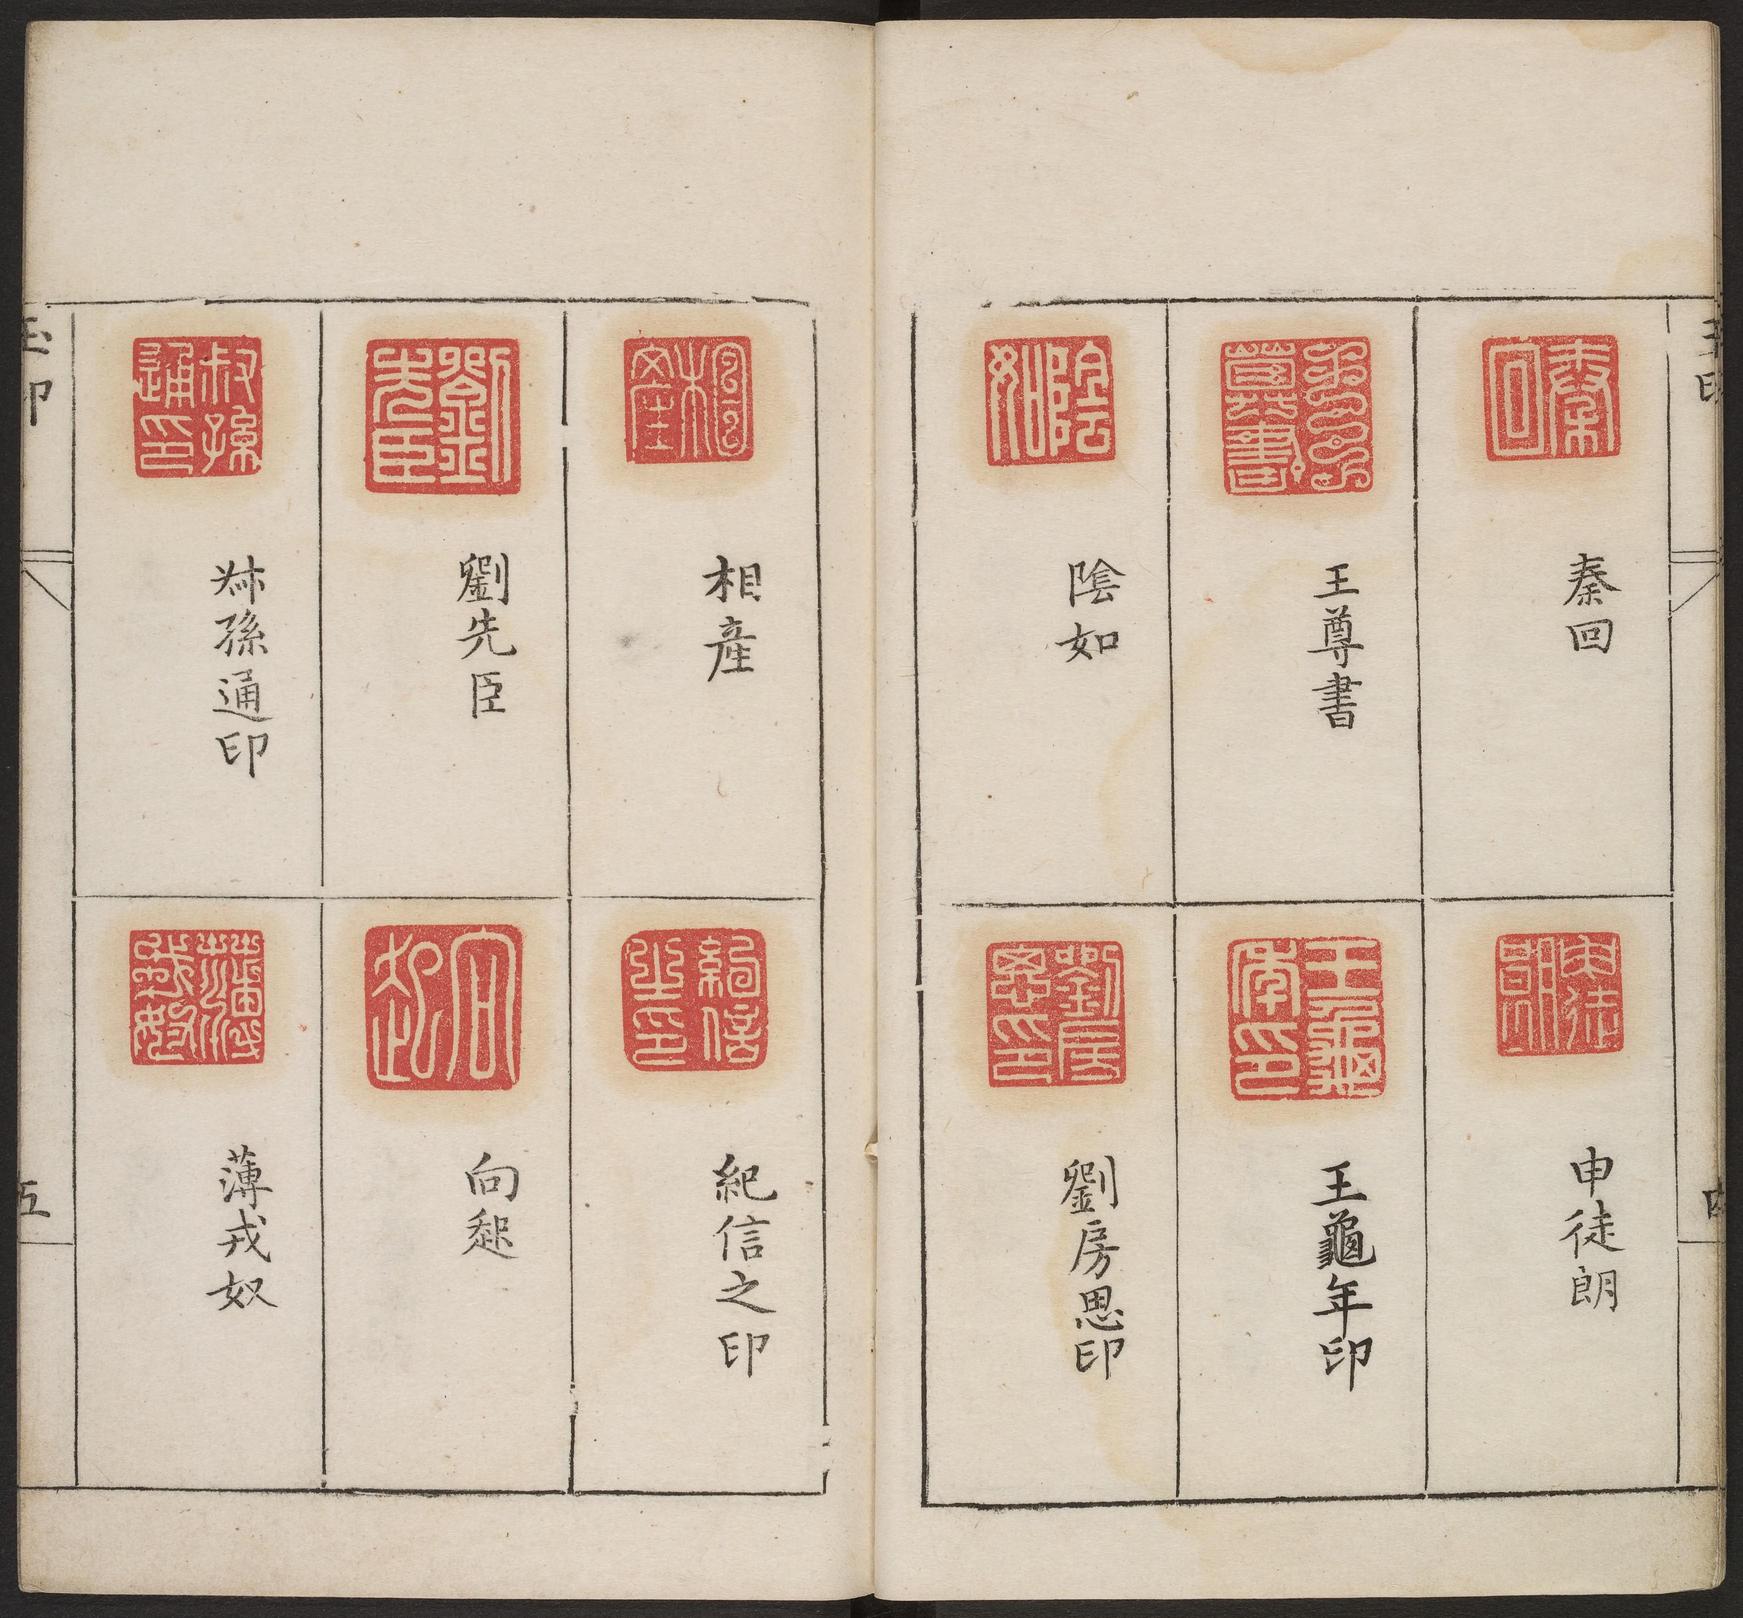 玉印
秦回
王尊書
陰如
申徒朗
王龜年印
劉房思印
四
相產
劉先臣
叔孫通印
紀信之印
向起
薄戎奴
玉印
五